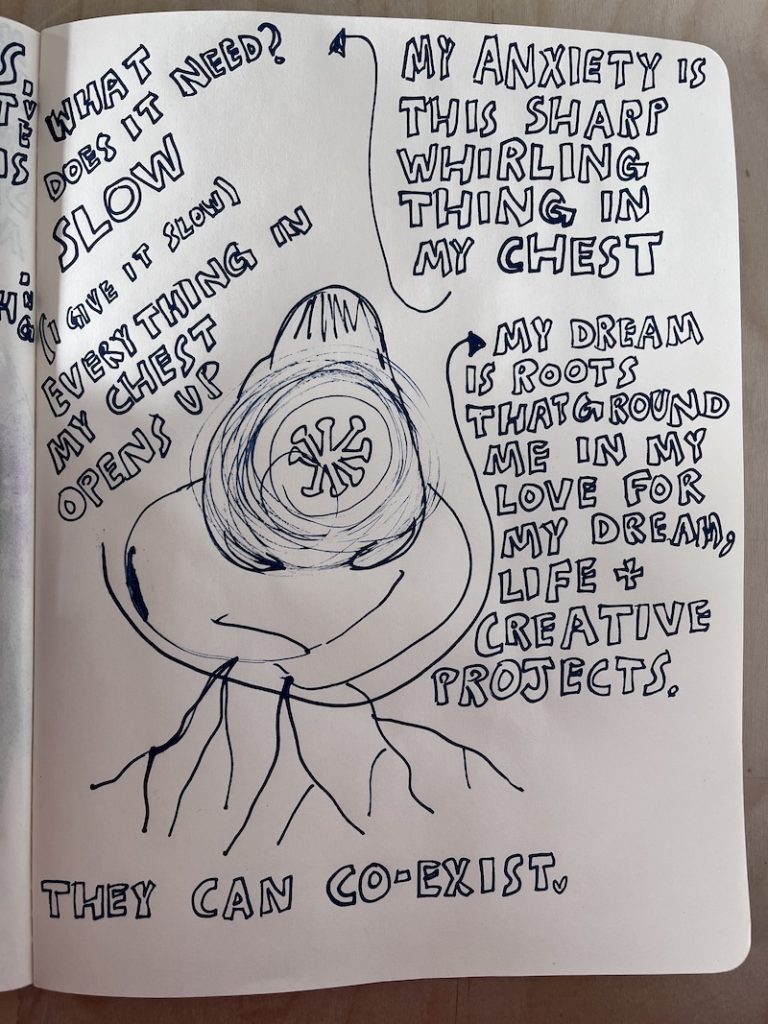 MY ANXIETY IS
THIS SHARP
WHIRLING
THING IN
MY CHEST
WHAT
DOES IT NEED?
SLOW
(I GIVE IT SLOW)
EVERYTHING IN
MY CHEST
OPENS UP
MY DREAM
IS ROOTS
THAT GROUND
ME IN MY
LOVE FOR
MY DREAM,
LIFE +
CREATIVE
PROJECTS.
THEY CAN CO-EXIST.